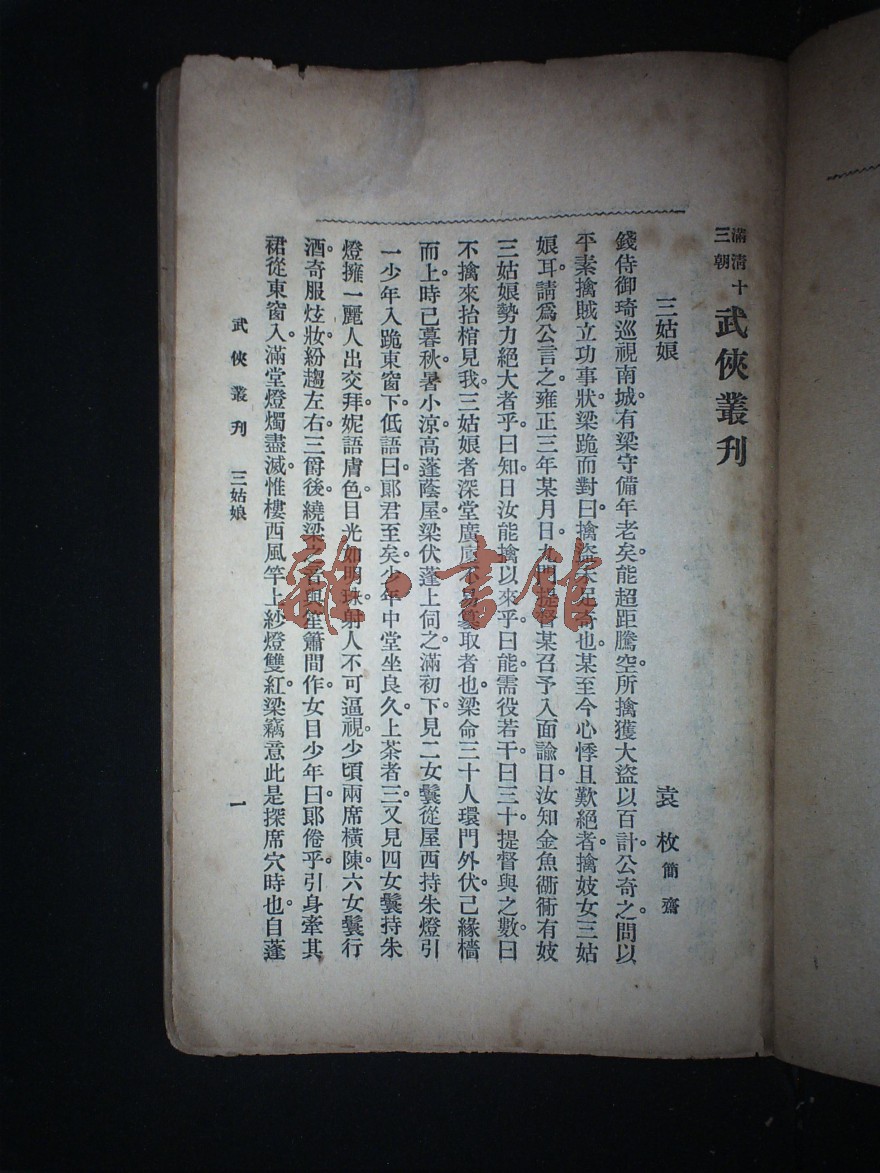 滿清十三朝 武俠叢刊
三姑娘 袁枚簡齋
錢侍御琦巡視南城。有梁守備年老矣。能超距騰空。所擒獲大盜以百計。公奇之。問以
平素擒賊立功事狀。梁跪而對曰。擒盜未足奇也。某至今心悸且歎絕者。擒妓女三姑
娘耳。請爲公言之。雍正三年某月日。九門提督某召予入面諭曰。汝知金魚衚衕有妓
三姑娘勢力絕大者乎。曰知。曰汝能擒以來乎。曰能。需役若干。曰三十。提督與之數。曰
不擒來抬棺見我。三姑娘者深堂廣廈。不易篡取者也。梁命三十人環門外伏。己緣檣
而上。時已暮。秋暑小涼。高蓬蔭屋。梁伏蓬上伺之。滿初下。見二女鬟從屋西持朱燈引
一少年入。跪東窗下。低語曰。郞君至矣。少年中堂坐良久。上茶者三。又見四女鬟持朱
燈擁一麗人出。交拜妮語。膚色目光如明珠射人不可逼視。少頃兩席橫陳。六女鬟行
酒。奇服炫妝。紛趨左右。三爵後。繞梁之音與笙簫間作。女目少年曰。郞倦乎。引身牽其
裙從東窗入。滿堂燈燭盡滅。惟樓西風竿上紗燈雙紅。梁竊意此是探席穴時也。自蓬
武俠叢刊 三姑娘 一
雜·書館